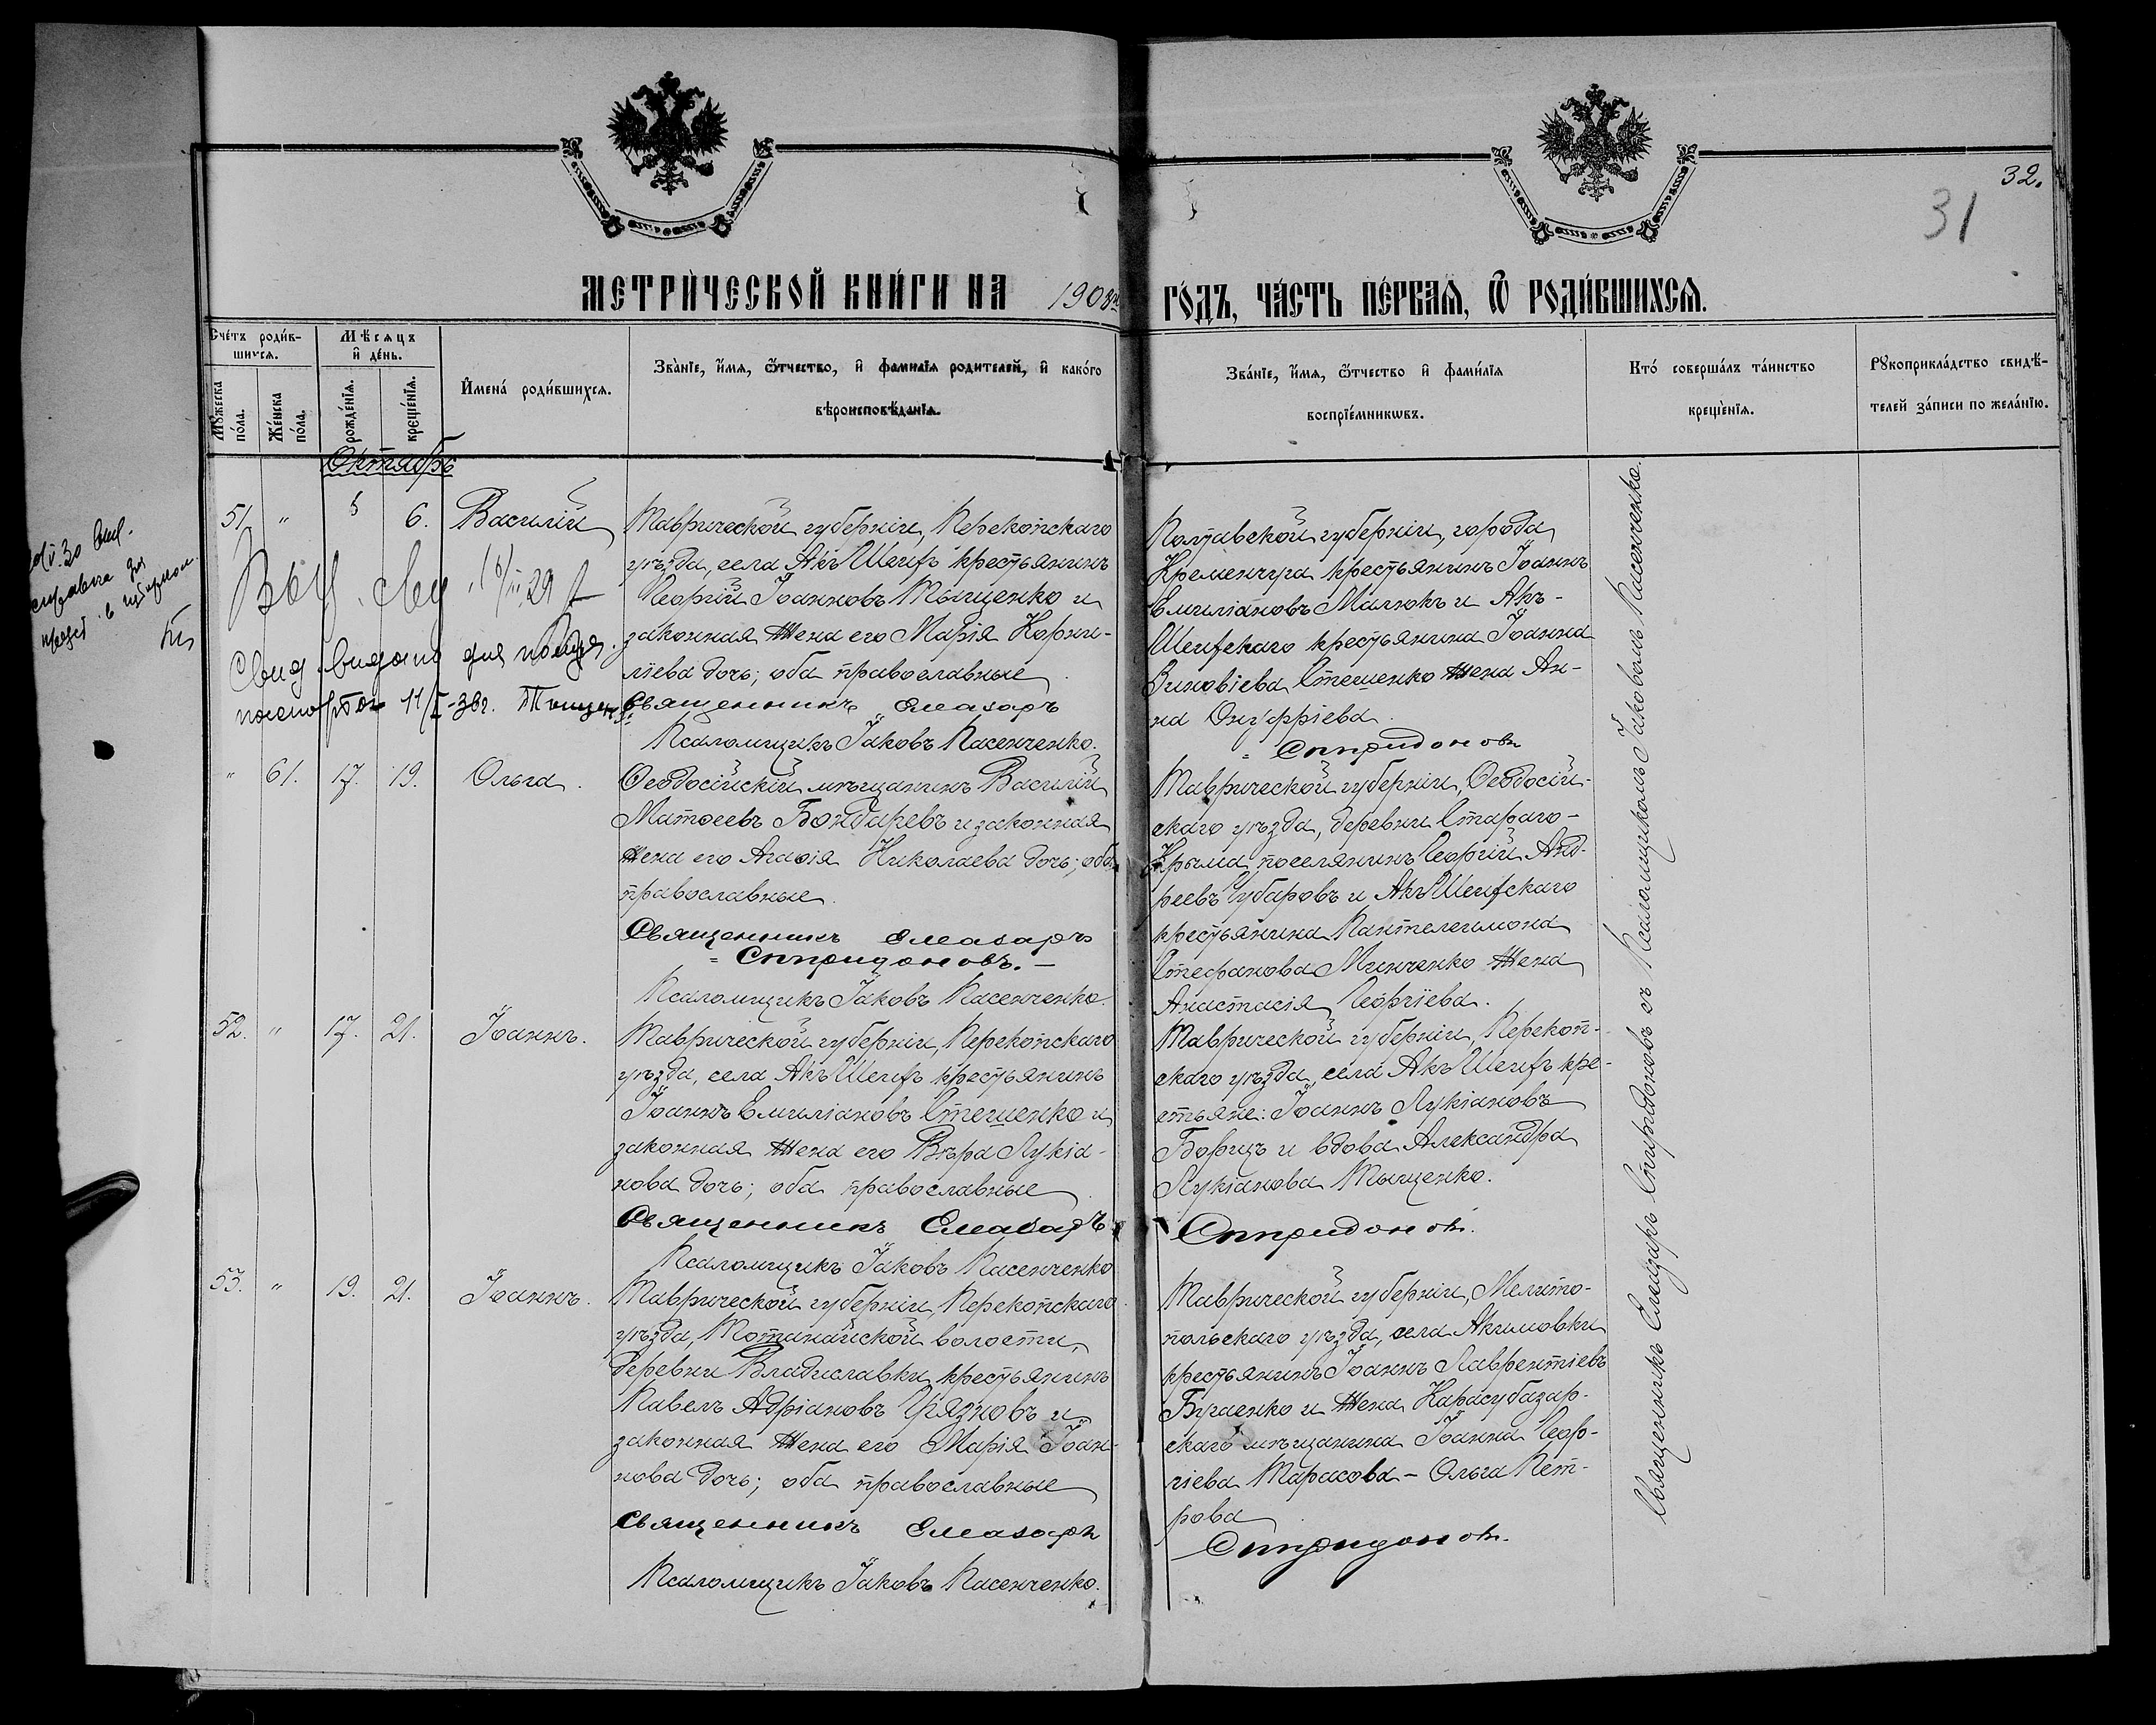 32.
31
МЕТРИ́ЧЕСКОЙ КНИ́ГИ НА 1908й
ГО́ДЪ, ЧА́СТЬ ПЕ́РВАЯ, Ѿ РОДИ́ВШИХСЯ.
Сче́тъ роди́в-
шихся.
Мѣсяцъ
и де́нь.
Мꙋжеска
по́ла.
Же́нска
по́ла.
рожде́нїя.
креще́нїя.
Имена́ роди́вшихся.
Зва́нїе, и́мя, ѻ́тчество, и фами́лїя родителей, и како́го
вѣроисповѣ́данїя.
Зва́нїе, и́мя, ѻ́тчество и фами́лїя
воспрїе́мникѡвъ.
Кто́ соверша́лъ та́инство
креще́нїя.
Рꙋкоприкла́дство свидѣ́-
телей за́писи по жела́нїю.
Октябрь
51. " 5 6. Василій
Таврической губерніи, Перекопскаго
уѣзда, села Акъ Шеихъ крестьянинъ
Георгій Іоанновъ Тыщенко и
законная жена его Марія Корни-
ліева дочь; оба православные
Священникъ Елеазаръ
Псаломщикъ Іаковъ Пасенченко.
Полтавской губерніи, города
Кременчуга крестьянинъ Іоаннъ
Емиліановъ Малюкъ и Акъ-
Шеихскаго крестьянина Іоанна
Зиновіева Стешенко жена Ан-
на Онуфріева.
Спиридоновъ
Выд. свид.
Свид выдано для
паспорта
справка для
" 61. 17. 19. Ольга.
Ѳеодосійскій мѣщанинъ Василій
Матѳеевъ Бондаревъ и законная
жена его Агаѳія Николаева дочь; оба
православные.
Священникъ Елеазаръ
Спиридоновъ.
Псаломщикъ Іаковъ Пасенченко.
Таврической губерніи, Ѳеодосій-
скаго уѣзда, деревни Стараго-
Крыма поселянинъ Георгій Анд-
реевъ Губаровъ и Акъ Шеихскаго
крестьянина Пантелеимона
Стефанова Минченко жена
Анастасія Георгіева.
52. " 17. 21. Іоаннъ.
Таврической губерніи, Перекопскаго
уѣзда, села Акъ Шеихъ крестьянинъ
Іоаннъ Емиліановъ Стешенко и
законная жена его Вѣра Лукіа-
нова дочь; оба православные
Священникъ Елеазаръ
Псаломщикъ Іаковъ Пасенченко
Таврической губерніи, Перекоп-
скаго уѣзда, села Акъ Шеихъ кре-
стьяне: Іоаннъ Лукіановъ
Борицъ и вдова Александра
Лукіанова Тыщенко.
Спиридоновъ.
53. " 19. 21. Іоаннъ.
Таврической губерніи, Перекопскаго
уѣзда, Тотанайской волости,
деревни Владиславки, крестьянинъ
Павелъ Адріановъ Грязновъ и
законная жена его Марія Іоан-
нова дочь; оба православные
Священникъ Елеазаръ
Псаломщикъ Іаковъ Пасенченко.
Таврической губерніи, Мелито-
польскаго уѣзда, села Акимовки
крестьянинъ Іоаннъ Лаврентіевъ
Бугаенко и жена Карасубазар-
скаго мѣщанина Іоанна Геор-
гіева Тарасова - Ольга Пет-
рова
Спиридоновъ.
Священникъ Елеазаръ Спиридоновъ съ Псаломщикомъ Іаковомъ Пасенченко.